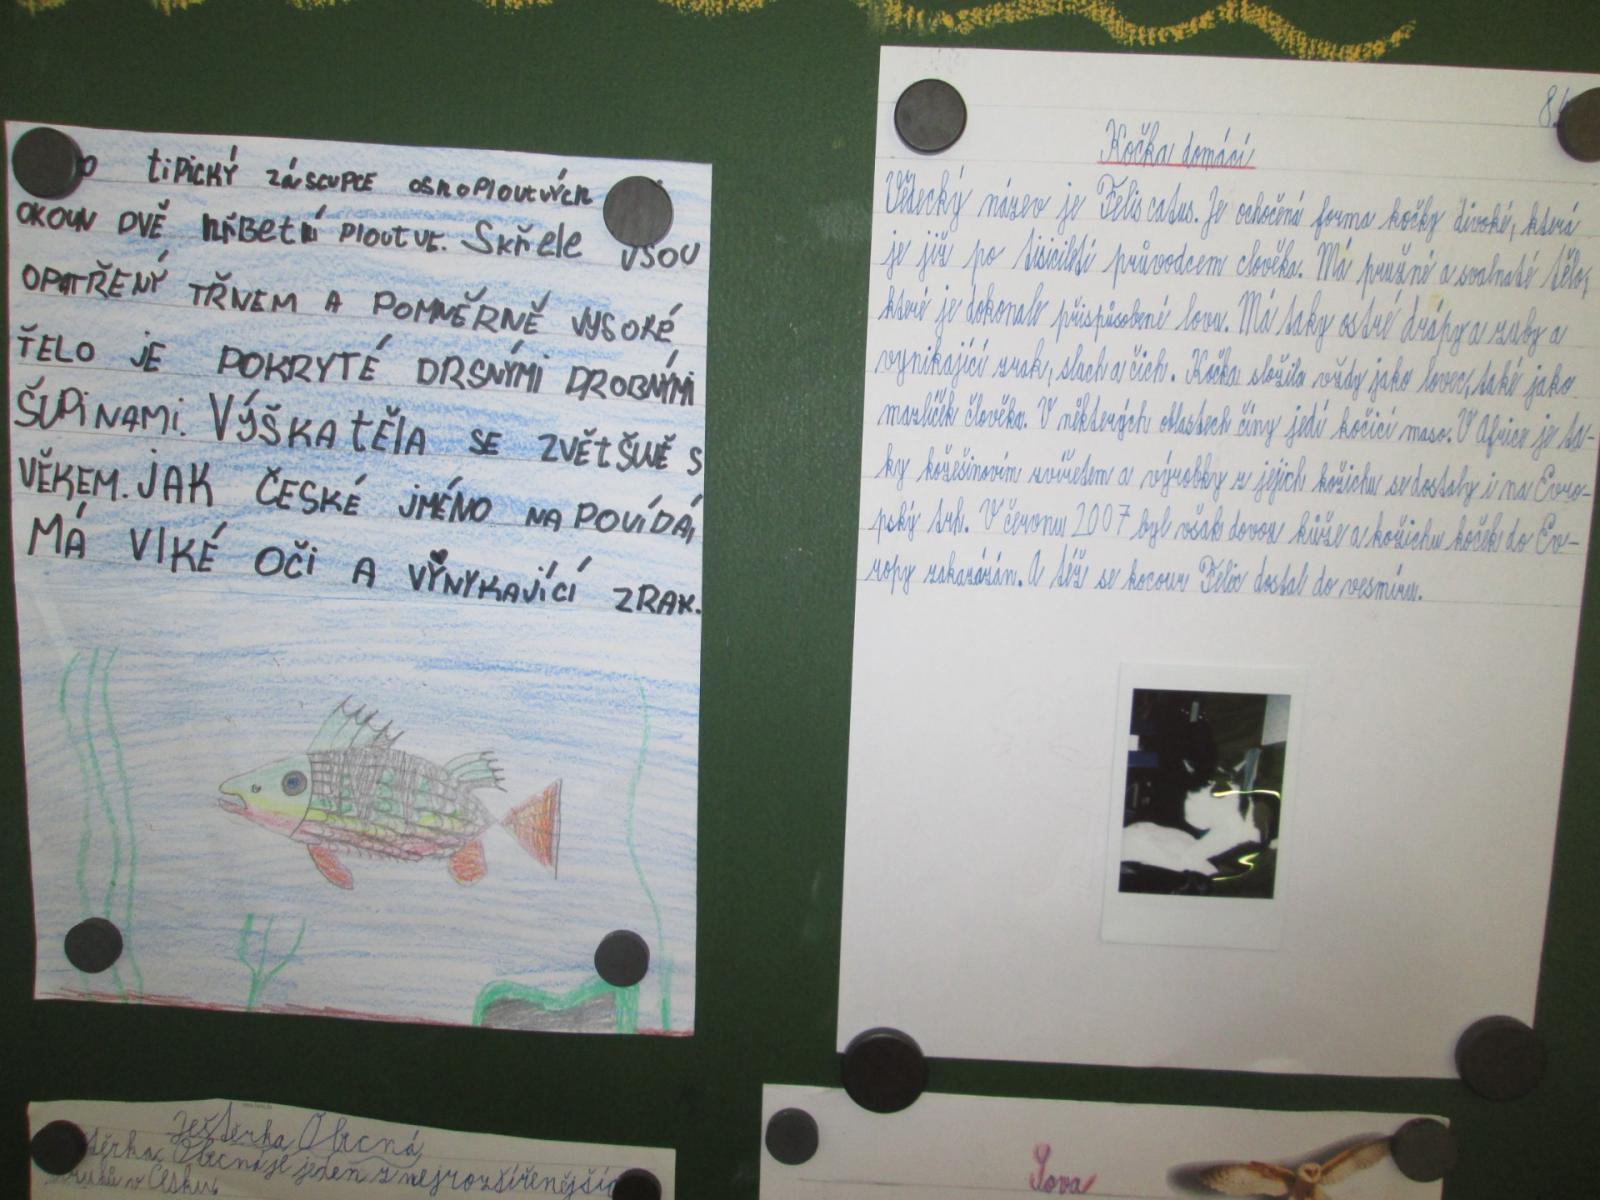 tiPICKÝ ZÁSCUPCE OSTNOPLOUTVÝCH
OKOUN DVĚ hřBetní PLOUTVE. Skřele JSOU
OPATŘENÝ TŘNEM A POMNĚRNĚ VYSOKÉ
ŤELO JE POKRYTÉ DRSNÝMI DROBNÝMI
ŠUPINAMI. VÝŠKA tĚlA SE ZVĚtŠUJĚ S
VĚKEM. JAK ČESKÉ JMÉNO NAPOVÍDÁ,
MÁ VlKÉ OČi A VÝNYKAJíCÍ ZRAK.
8.
Kočka domácí
Vědecký název je Felis catus. Je ochočená forma kočky divoké, která
je již po tisíciletí průvodcem člověka. Má pružné a svalnaté tělo,
které je dokonale přispůsobené lovu. Má taky ostré drápy a zuby a
vynikající zrak, sluch a čich. Kočka sloužila vždy jako lovec, také jako
mazlíček člověka. V některých oblastech číny jedí kočicí maso. V Africe je ta-
ky kožešinovím zvířetem a výrobky z jejich kožichu se dostaly i na Evro-
pský trh. V červnu 2007 byl však dovoz kůže a kožichu koček do Ev-
ropy zakazázán. A též se kocour Felix dostal do vesmíru.
Ješterka Obecná
těrka Obecná je jeden z nejrozšířenějšíc
druhů v Česku.
Sova